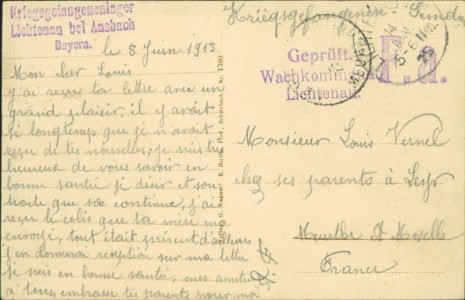 Kriegsgefangenenlager
Lichtenau bei Ansbach
Bayern.
Kriegsgefangenen
le 8 Juin 1915
Mon cher Louis
j'ai reçu ta lettre avec un
grand plaisir, il y avait
si longtemps que je n'avait
reçu de tes nouvelles, je suis
heureux de vous savoir en
bonne santé je désir et sou-
haite que sa continue, j'ai
reçu le colis que ta mère ma
envoyé, tout était présent d'ailleurs
j'en donnerai reception sur ma lettre
je suis en bonne santé, mes amitiés
à tous, embrasse tes parents pour moi
Geprüft.
Wachkommando
Lichtenau.
Monsieur Louis Vernel
chez ses parents à Leyr
Meurthe et Moselle
France